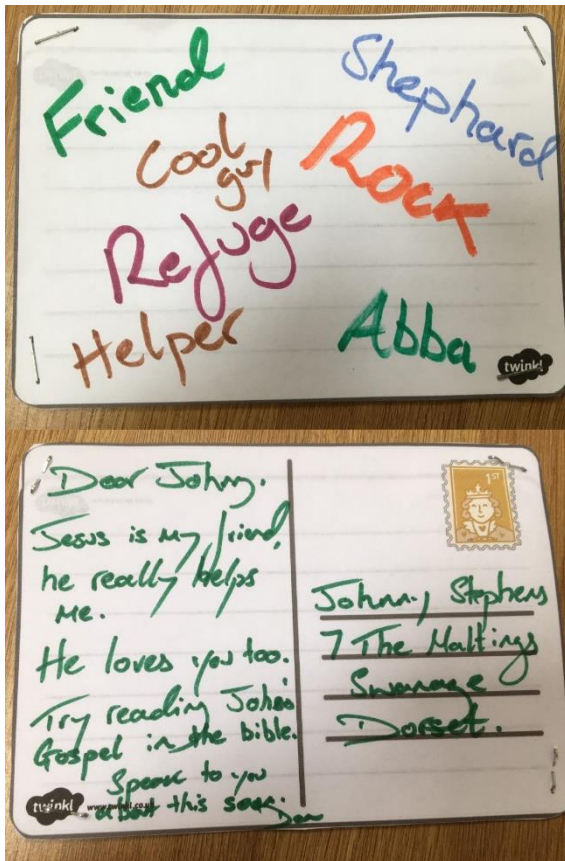 Friend
Shephard
Cool
guy
Rock
Refuge
Helper
Abba
twinkl
Dear Johnny.
Jesus is my friend,
he really helps
me.
He loves you too.
Try reading John's
Gospel in the bible.
Speak to you
about this soon.
Dan
twinkl www.twinkl.co.uk
1ST
Johnny Stephens
7 The Maltings
Swanage
Dorset.